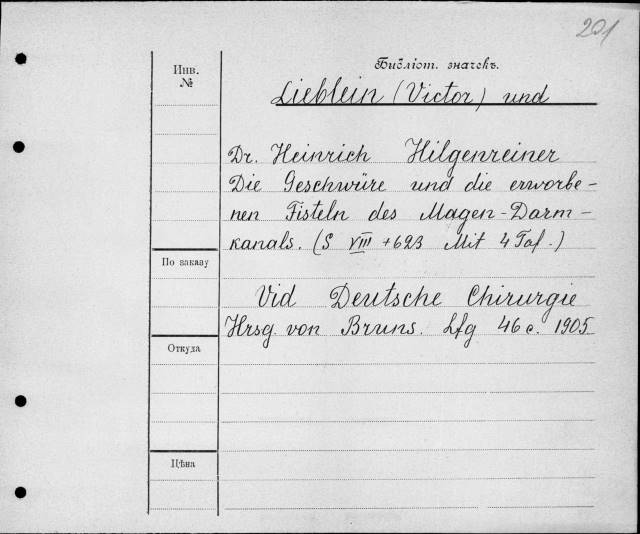 201
Инв.
№
Библіот. значекъ.
Lieblein (Victor) und
Dr. Heinrich Hilgenreiner
Die Geschwüre und die erworbe-
nen Fisteln des Magen-Darm-
kanals. (S VIII + 623 Mit 4 Taf.)
По заказу
Vid Deutsche Chirurgie
Hrsg. von Bruns. Lfg 46 c. 1905
Откуда
Цѣна